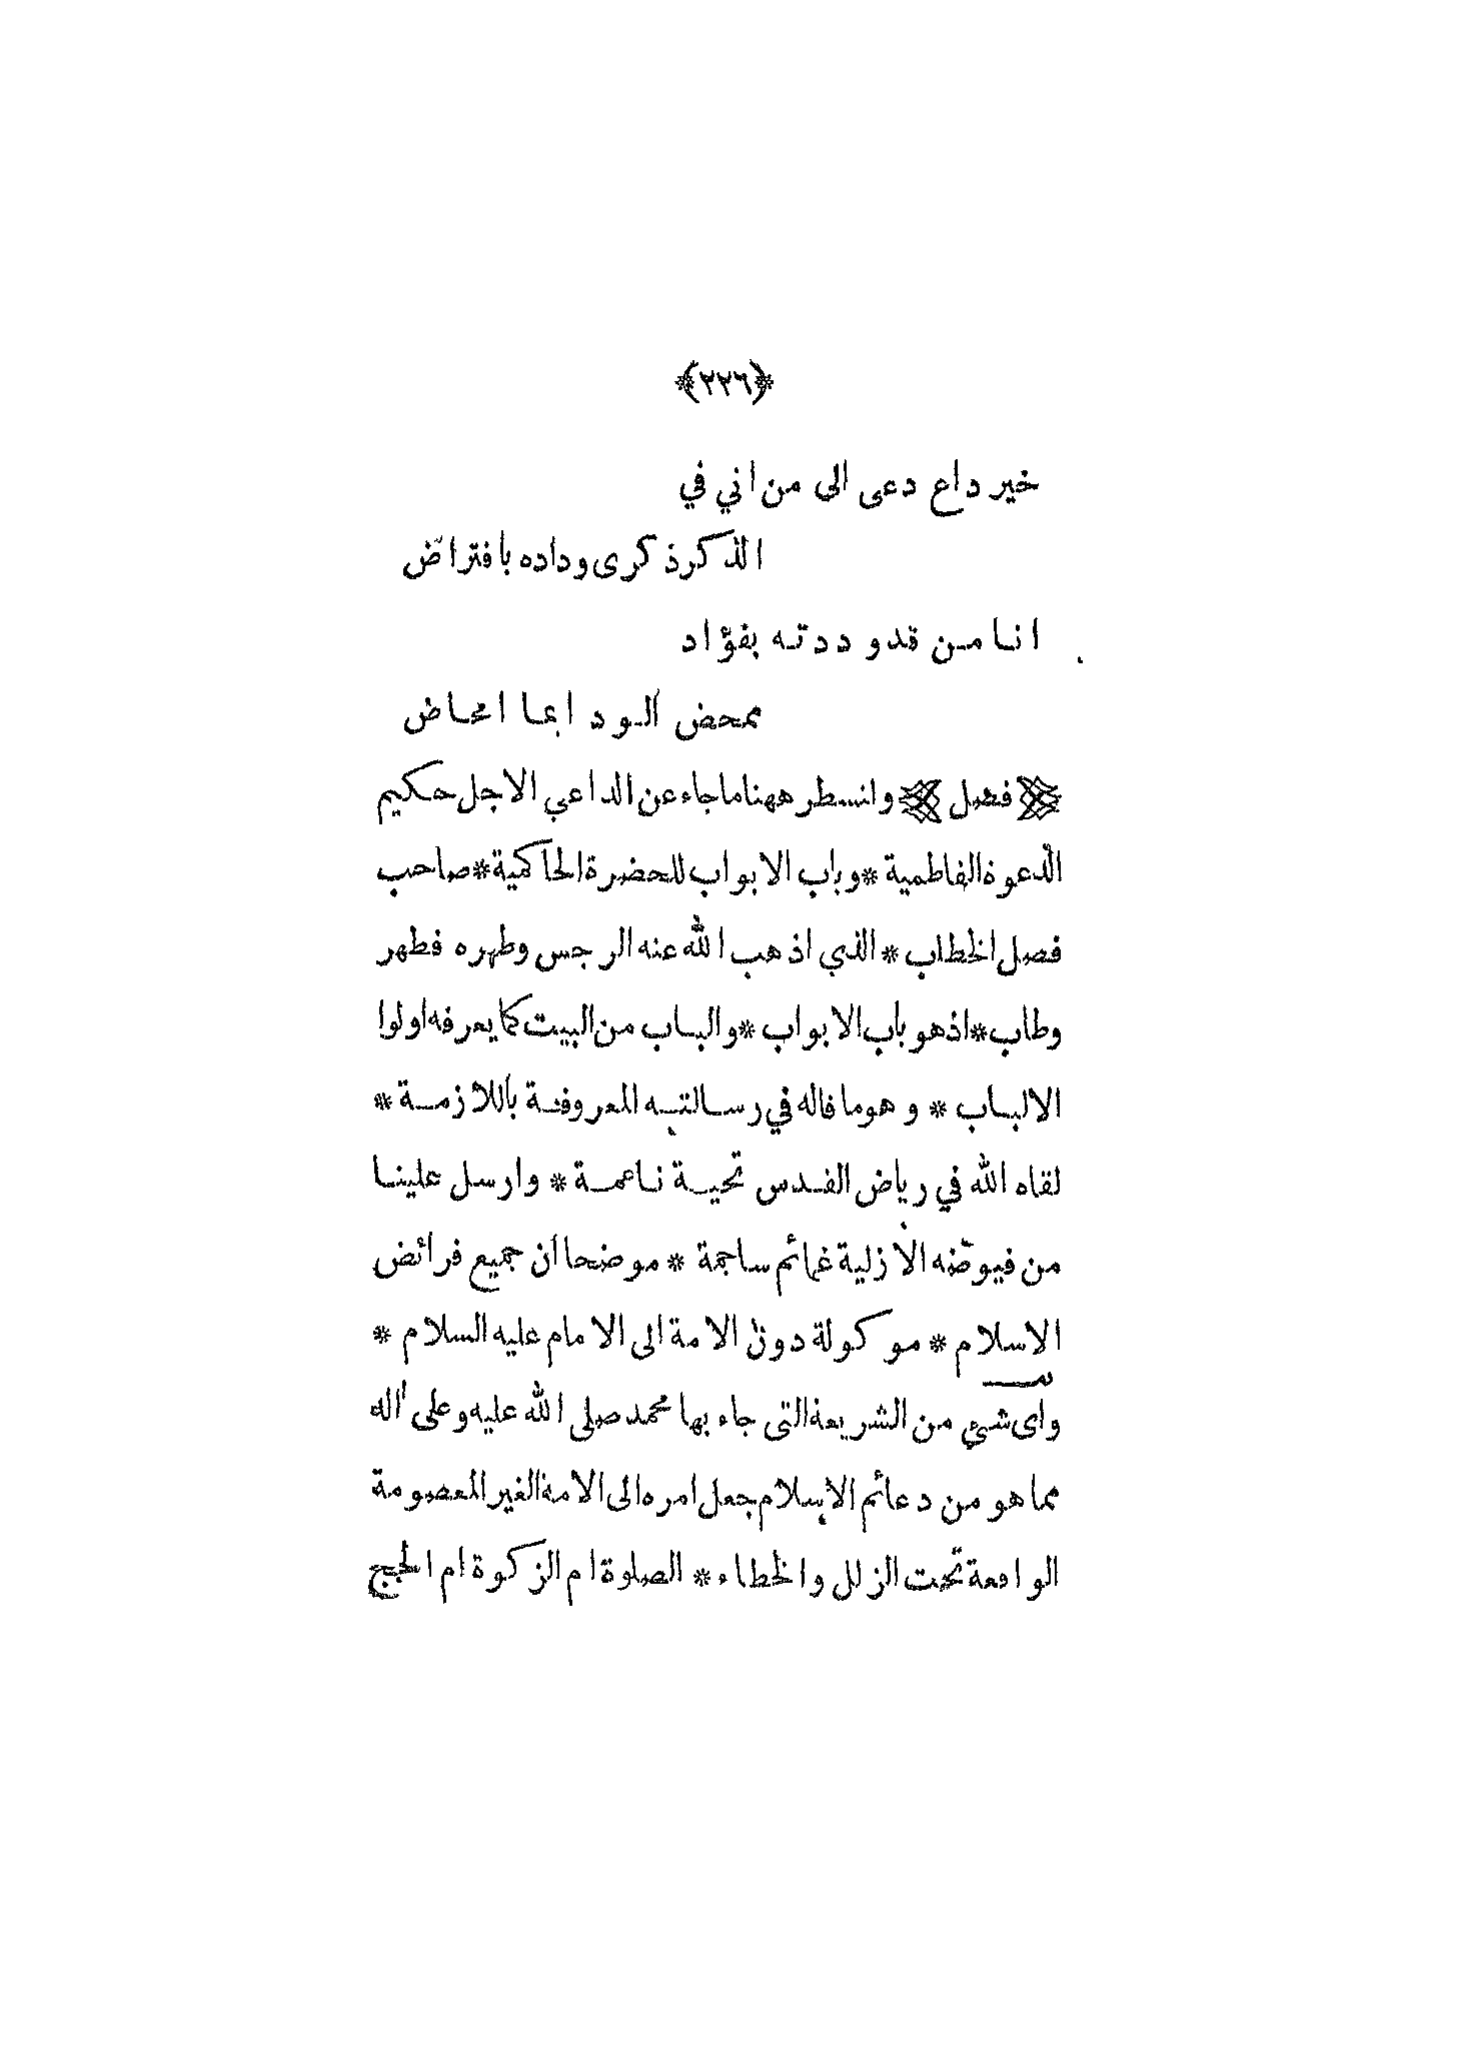 ﴿٢٢٦﴾
خير داع دعى الى من اني في
الذكر ذكرى وداده بافتراض
انا من قد وددته بفؤاد
ممحض الود ايما امحاض
فصل ولنسطر ههنا ما جاء عن الداعي الاجل حكيم
الدعوة الفاطمية * وباب الابواب للحضرة الحاكمية * صاحب
فصل الخطاب * الذي اذهب الله عنه الرجس وطهره فطهر
وطاب * اذ هو باب الابواب * والباب من البيت كما يعرفه اولوا
الالباب * وهو ما قاله في رسالته المعروفة باللازمة *
لقاه الله في رياض القدس تحية ناعمة * وارسل علينا
من فيوضه الازلية غمائم ساجمة * موضحا ان جميع فرائض
الاسلام * موكولة دون الامة الى الامام عليه السلام *
واى شيء من الشريعة التى جاء بها محمد صلى الله عليه وعلى آله
مما هو من دعائم الاسلام جعل امره الى الامة الغير المعصومة
الواقعة تحت الزلل والخطاء * الصلوة ام الزكوة ام الحج